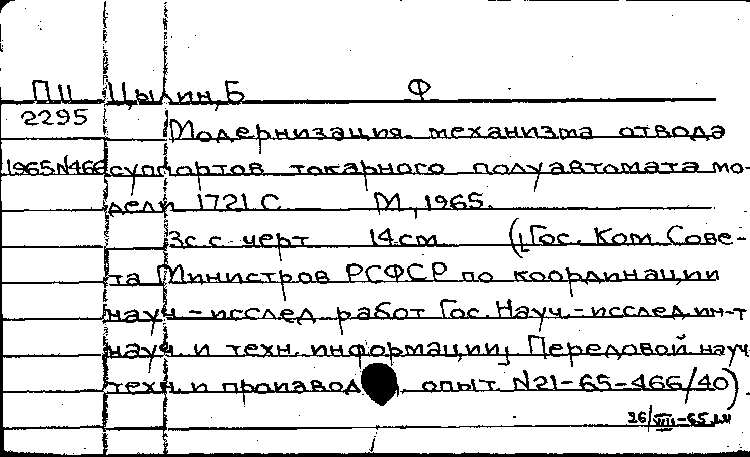 П11 Цылин, Б Ф
2295
Модернизация механизма отвода
1965 N466 суппортов токарного полуавтомата мо-
дели 1721 С. М., 1965.
3с с черт 14 см (Гос. Ком Сове-
та Министров РСФСР по координации
науч - исслед. работ Гос. Науч. - исслед. ин-т
науч. и техн. информации; Передовой науч
техн. и произвол опыт. N21-65-466/40).
26/VIII-65